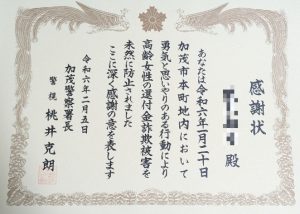 感謝状
殿
あなたは令和六年一月二十日
加茂市本町地内において
勇気と思いやりのある行動により
高齢女性の還付金詐欺被害を
未然に防止されました
ここに深く感謝の意を表します
令和六年二月五日
加茂警察署長
警視 桃井克朗